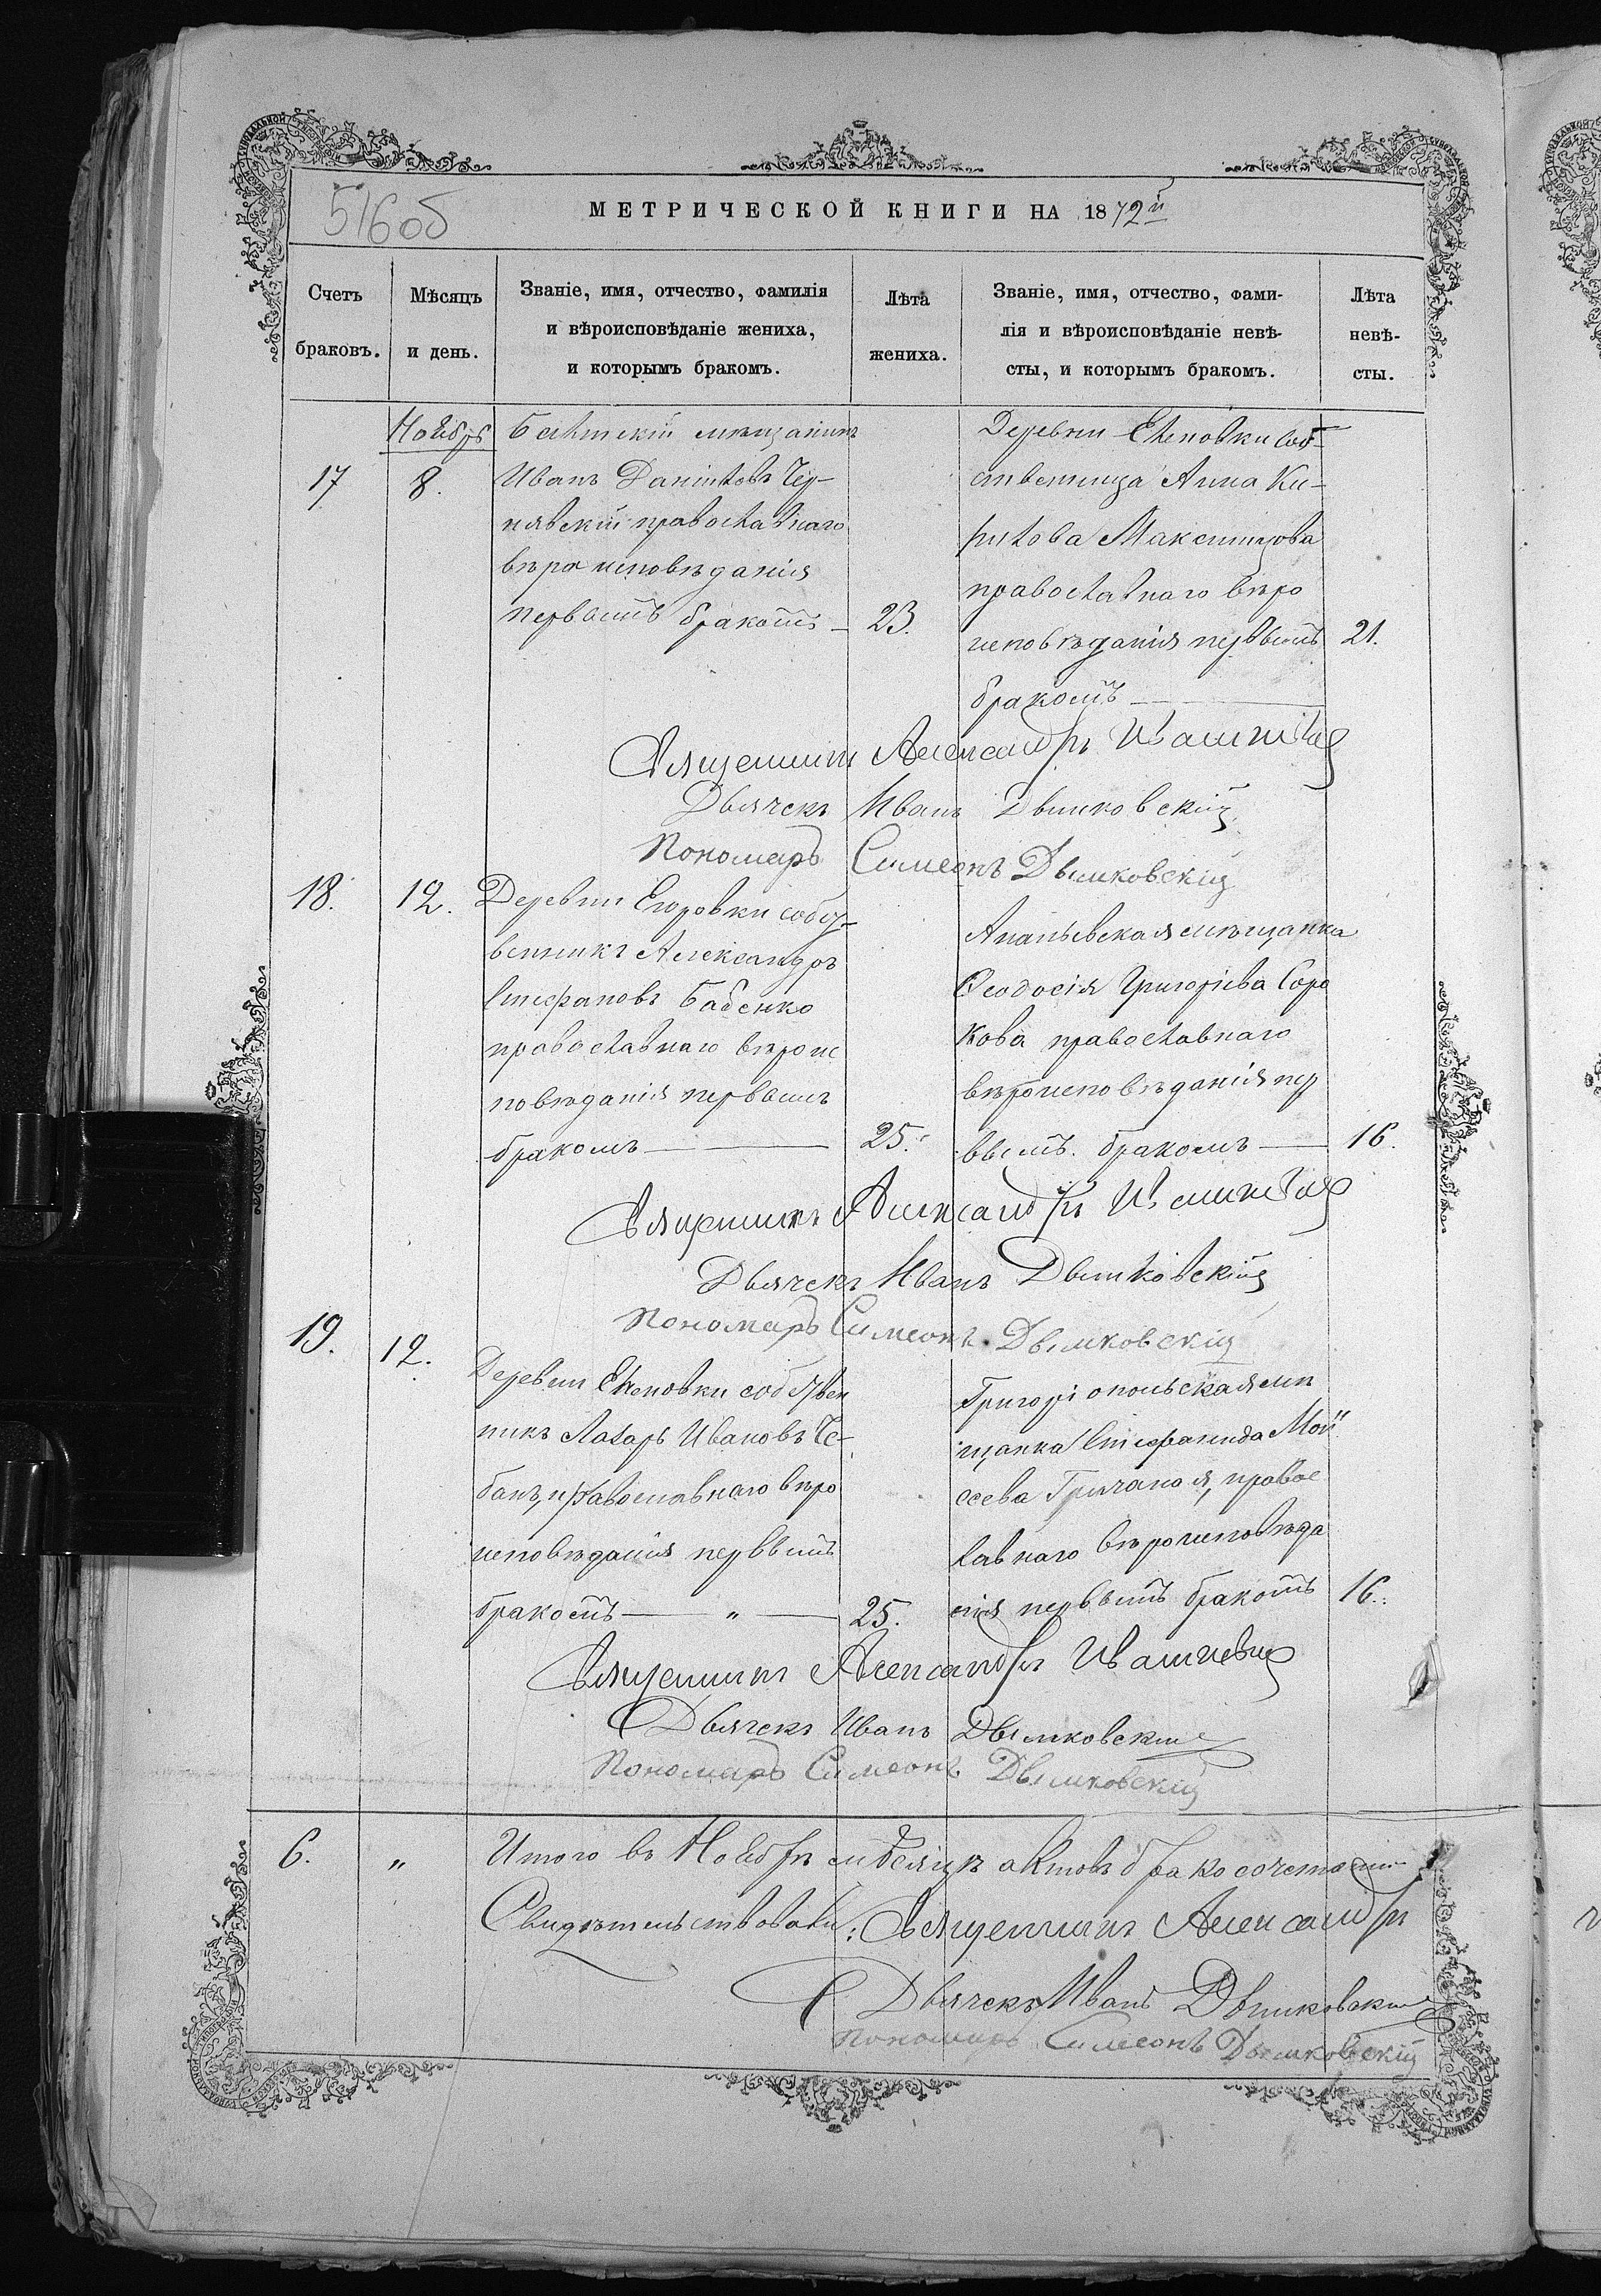 516об
МЕТРИЧЕСКОЙ КНИГИ НА 1872й
Счетъ браковъ.
Мѣсяцъ и день.
Званіе, имя, отчество, фамилія
и вѣроисповѣданіе жениха,
и которымъ бракомъ.
Лѣта жениха.
Званіе, имя, отчество, фами-
лія и вѣроисповѣданіе невѣ-
сты, и которымъ бракомъ.
Лѣта невѣ-
сты.
Ноябрь
17
8.
мѣщанинъ
Иванъ Даніиловъ Чер-
нявскій православнаго
вѣроисповѣданія
первымъ бракомъ —
23.
Деревни Еленовки соб-
ственница Анна Ки-
рилова Максимцова
православнаго вѣро
исповѣданія первымъ
бракомъ —
21.
Священникъ Александръ Ивашкевич
Дьячекъ Иванъ Дымковскій
Пономарь Симеонъ Дымковскій
18.
12.
Деревни Егоровки собст-
венникъ Александръ
Стефановъ Бабенко
православнаго вѣроис
повѣданія первымъ
бракомъ —
25.
Ананьевская мѣщанка
Ѳеодосія Григоріева Соро
кова православнаго
вѣроисповѣданія пер
вымъ бракомъ —
16.
Священникъ Александръ Ивашкевич
Дьячекъ Иванъ Дымковскій
Пономарь Симеонъ Дымковскій
19.
12.
Деревни Еленовки собствен
никъ Лазарь Ивановъ Че-
банъ, православнаго вѣро
исповѣданія первымъ
бракомъ — " —
25.
Григоріопольская мѣ
щанка Стефанида Мои
сеева православ
лавнаго вѣроисповѣда
нія первымъ бракомъ
16.
Священникъ Александръ Ивашкевич
Дьячекъ Иванъ Дымковскій
Пономарь Симеонъ Дымковскій
6.
"
Итого въ Ноябрѣ мѣсяцѣ актовъ бракосочетанія
Свидѣтельствовали: Священникъ Александръ
Дьячекъ Иванъ Дымковскій
Пономарь Симеонъ Дымковскій